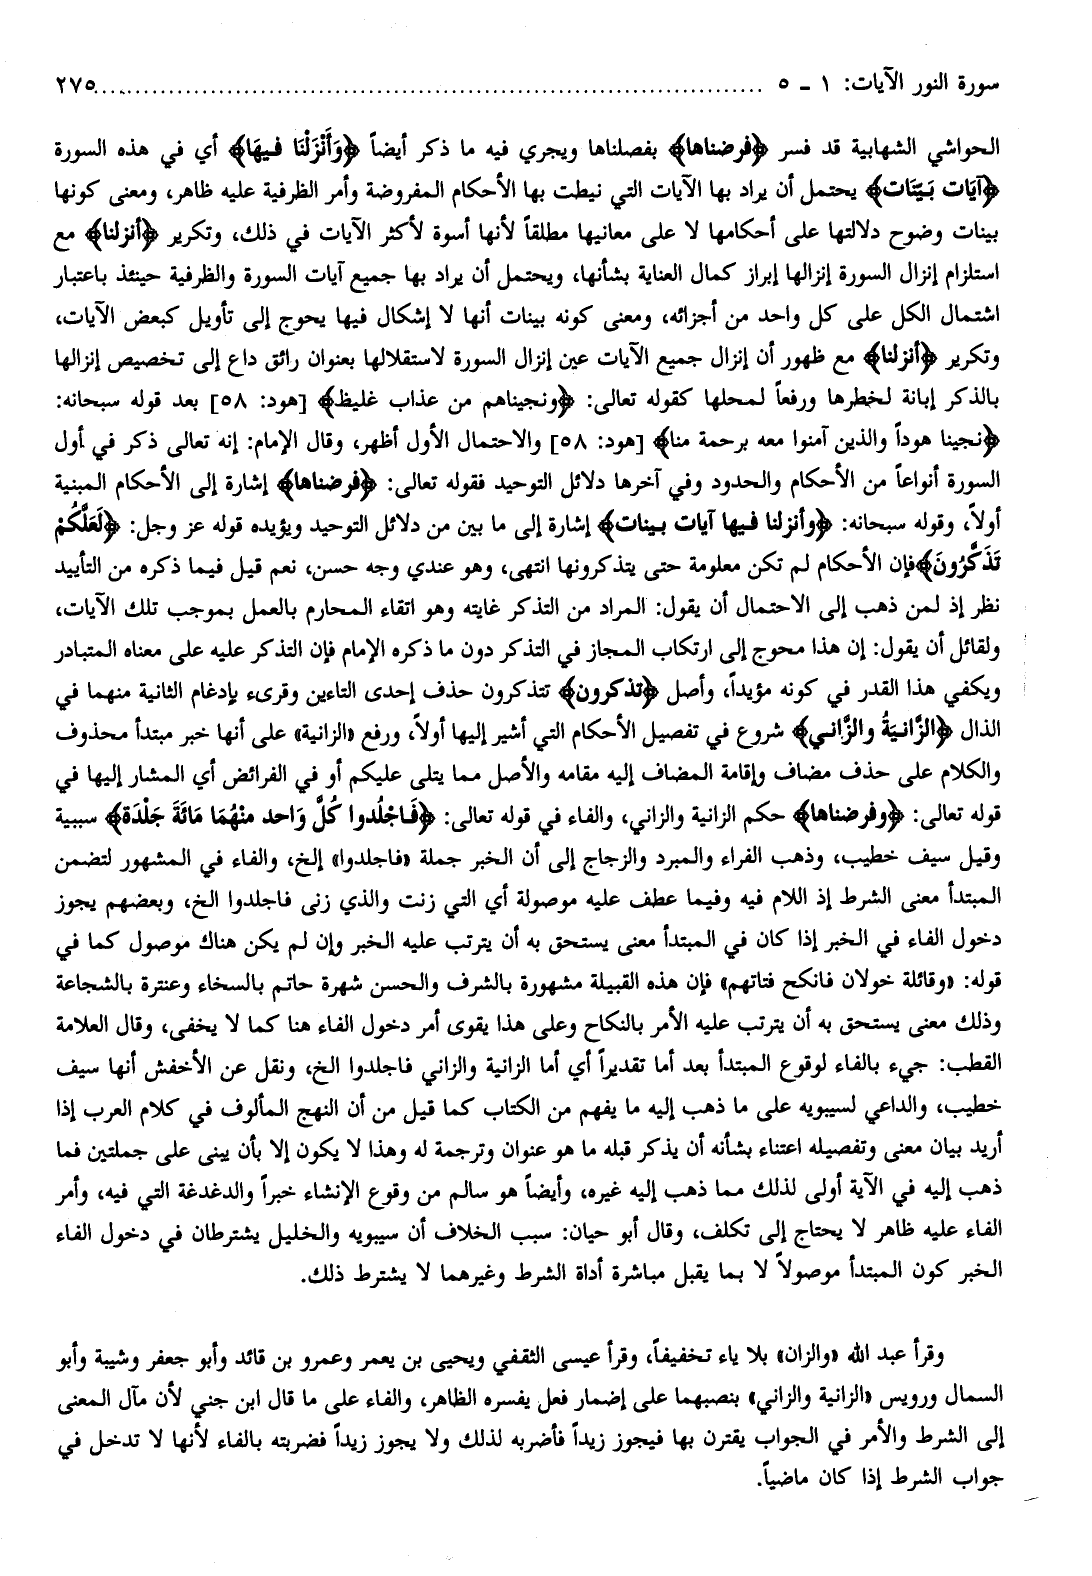 سورة النور الآيات: ١ - ٥ ........................................................................ ٢٧٥
الحواشي الشهابية قد فسر ﴿فرضناها﴾ بفصلناها ويجري فيه ما ذكر أيضاً ﴿وَأَنْزَلْنَا فيهَا﴾ أي في هذه السورة
﴿آيَات بَيِّنَات﴾ يحتمل أن يراد بها الآيات التي نيطت بها الأحكام المفروضة وأمر الظرفية عليه ظاهر، ومعنى كونها
بينات وضوح دلالتها على أحكامها لا على معانيها مطلقاً لأنها أسوة لأكثر الآيات في ذلك، وتكرير ﴿أنزلنا﴾ مع
استلزام إنزال السورة إنزالها إبراز كمال العناية بشأنها، ويحتمل أن يراد بها جميع آيات السورة والظرفية حينئذ باعتبار
اشتمال الكل على كل واحد من أجزائه، ومعنى كونه بينات أنها لا إشكال فيها يحوج إلى تأويل كبعض الآيات،
وتكرير ﴿أنزلنا﴾ مع ظهور أن إنزال جميع الآيات عين إنزال السورة لاستقلالها بعنوان رائق داع إلى تخصيص إنزالها
بالذكر إبانة لخطرها ورفعاً لمحلها كقوله تعالى: ﴿ونجيناهم من عذاب غليظ﴾ [هود: ٥٨] بعد قوله سبحانه:
﴿نجينا هوداً والذين آمنوا معه برحمة منا﴾ [هود: ٥٨] والاحتمال الأول أظهر، وقال الإمام: إنه تعالى ذكر في أول
السورة أنواعاً من الأحكام والحدود وفي آخرها دلائل التوحيد فقوله تعالى: ﴿فرضناها﴾ إشارة إلى الأحكام المبنية
أولاً، وقوله سبحانه: ﴿وأنزلنا فيها آيات بينات﴾ إشارة إلى ما بين من دلائل التوحيد ويؤيده قوله عز وجل: ﴿لَعَلَّكُمْ
تَذَكَّرُونَ﴾ فإن الأحكام لم تكن معلومة حتى يتذكرونها انتهى، وهو عندي وجه حسن، نعم قيل فيما ذكره من التأييد
نظر إذ لمن ذهب إلى الاحتمال أن يقول: المراد من التذكر غايته وهو اتقاء المحارم بالعمل بموجب تلك الآيات،
ولقائل أن يقول: إن هذا محوج إلى ارتكاب المجاز في التذكر دون ما ذكره الإمام فإن التذكر عليه على معناه المتبادر
ويكفي هذا القدر في كونه مؤيداً، وأصل ﴿تذكرون﴾ تتذكرون حذف إحدى التاءين وقرىء بإدغام الثانية منهما في
الذال ﴿الزَّانيَةُ والزَّاني﴾ شروع في تفصيل الأحكام التي أشير إليها أولاً، ورفع «الزانية» على أنها خبر مبتدأ محذوف
والكلام على حذف مضاف وإقامة المضاف إليه مقامه والأصل مما يتلى عليكم أو في الفرائض أي المشار إليها في
قوله تعالى: ﴿وفرضناها﴾ حكم الزانية والزاني، والفاء في قوله تعالى: ﴿فَاجْلُدوا كُلَّ وَاحد منْهُمَا مَائَةَ جَلْدَة﴾ سببية
وقيل سيف خطيب، وذهب الفراء والمبرد والزجاج إلى أن الخبر جملة «فاجلدوا» إلخ، والفاء في المشهور لتضمن
المبتدأ معنى الشرط إذ اللام فيه وفيما عطف عليه موصولة أي التي زنت والذي زنى فاجلدوا الخ، وبعضهم يجوز
دخول الفاء في الخبر إذا كان في المبتدأ معنى يستحق به أن يترتب عليه الخبر وإن لم يكن هناك موصول كما في
قوله: «وقائلة خولان فانكح فتاتهم» فإن هذه القبيلة مشهورة بالشرف والحسن شهرة حاتم بالسخاء وعنترة بالشجاعة
وذلك معنى يستحق به أن يترتب عليه الأمر بالنكاح وعلى هذا يقوى أمر دخول الفاء هنا كما لا يخفى، وقال العلامة
القطب: جيء بالفاء لوقوع المبتدأ بعد أما تقديراً أي أما الزانية والزاني فاجلدوا الخ، ونقل عن الأخفش أنها سيف
خطيب، والداعي لسيبويه على ما ذهب إليه ما يفهم من الكتاب كما قيل من أن النهج المألوف في كلام العرب إذا
أريد بيان معنى وتفصيله اعتناء بشأنه أن يذكر قبله ما هو عنوان وترجمة له وهذا لا يكون إلا بأن يبنى على جملتين فما
ذهب إليه في الآية أولى لذلك مما ذهب إليه غيره، وأيضاً هو سالم من وقوع الإنشاء خبراً والدغدغة التي فيه، وأمر
الفاء عليه ظاهر لا يحتاج إلى تكلف، وقال أبو حيان: سبب الخلاف أن سيبويه والخليل يشترطان في دخول الفاء
الخبر كون المبتدأ موصولاً لا بما يقبل مباشرة أداة الشرط وغيرهما لا يشترط ذلك.
وقرأ عبد الله «والزان» بلا ياء تخفيفاً، وقرأ عيسى الثقفي ويحيى بن يعمر وعمرو بن قائد وأبو جعفر وشيبة وأبو
السمال ورويس «الزانية والزاني» بنصبهما على إضمار فعل يفسره الظاهر، والفاء على ما قال ابن جني لأن مآل المعنى
إلى الشرط والأمر في الجواب يقترن بها فيجوز زيداً فأضربه لذلك ولا يجوز زيداً فضربته بالفاء لأنها لا تدخل في
جواب الشرط إذا كان ماضياً.